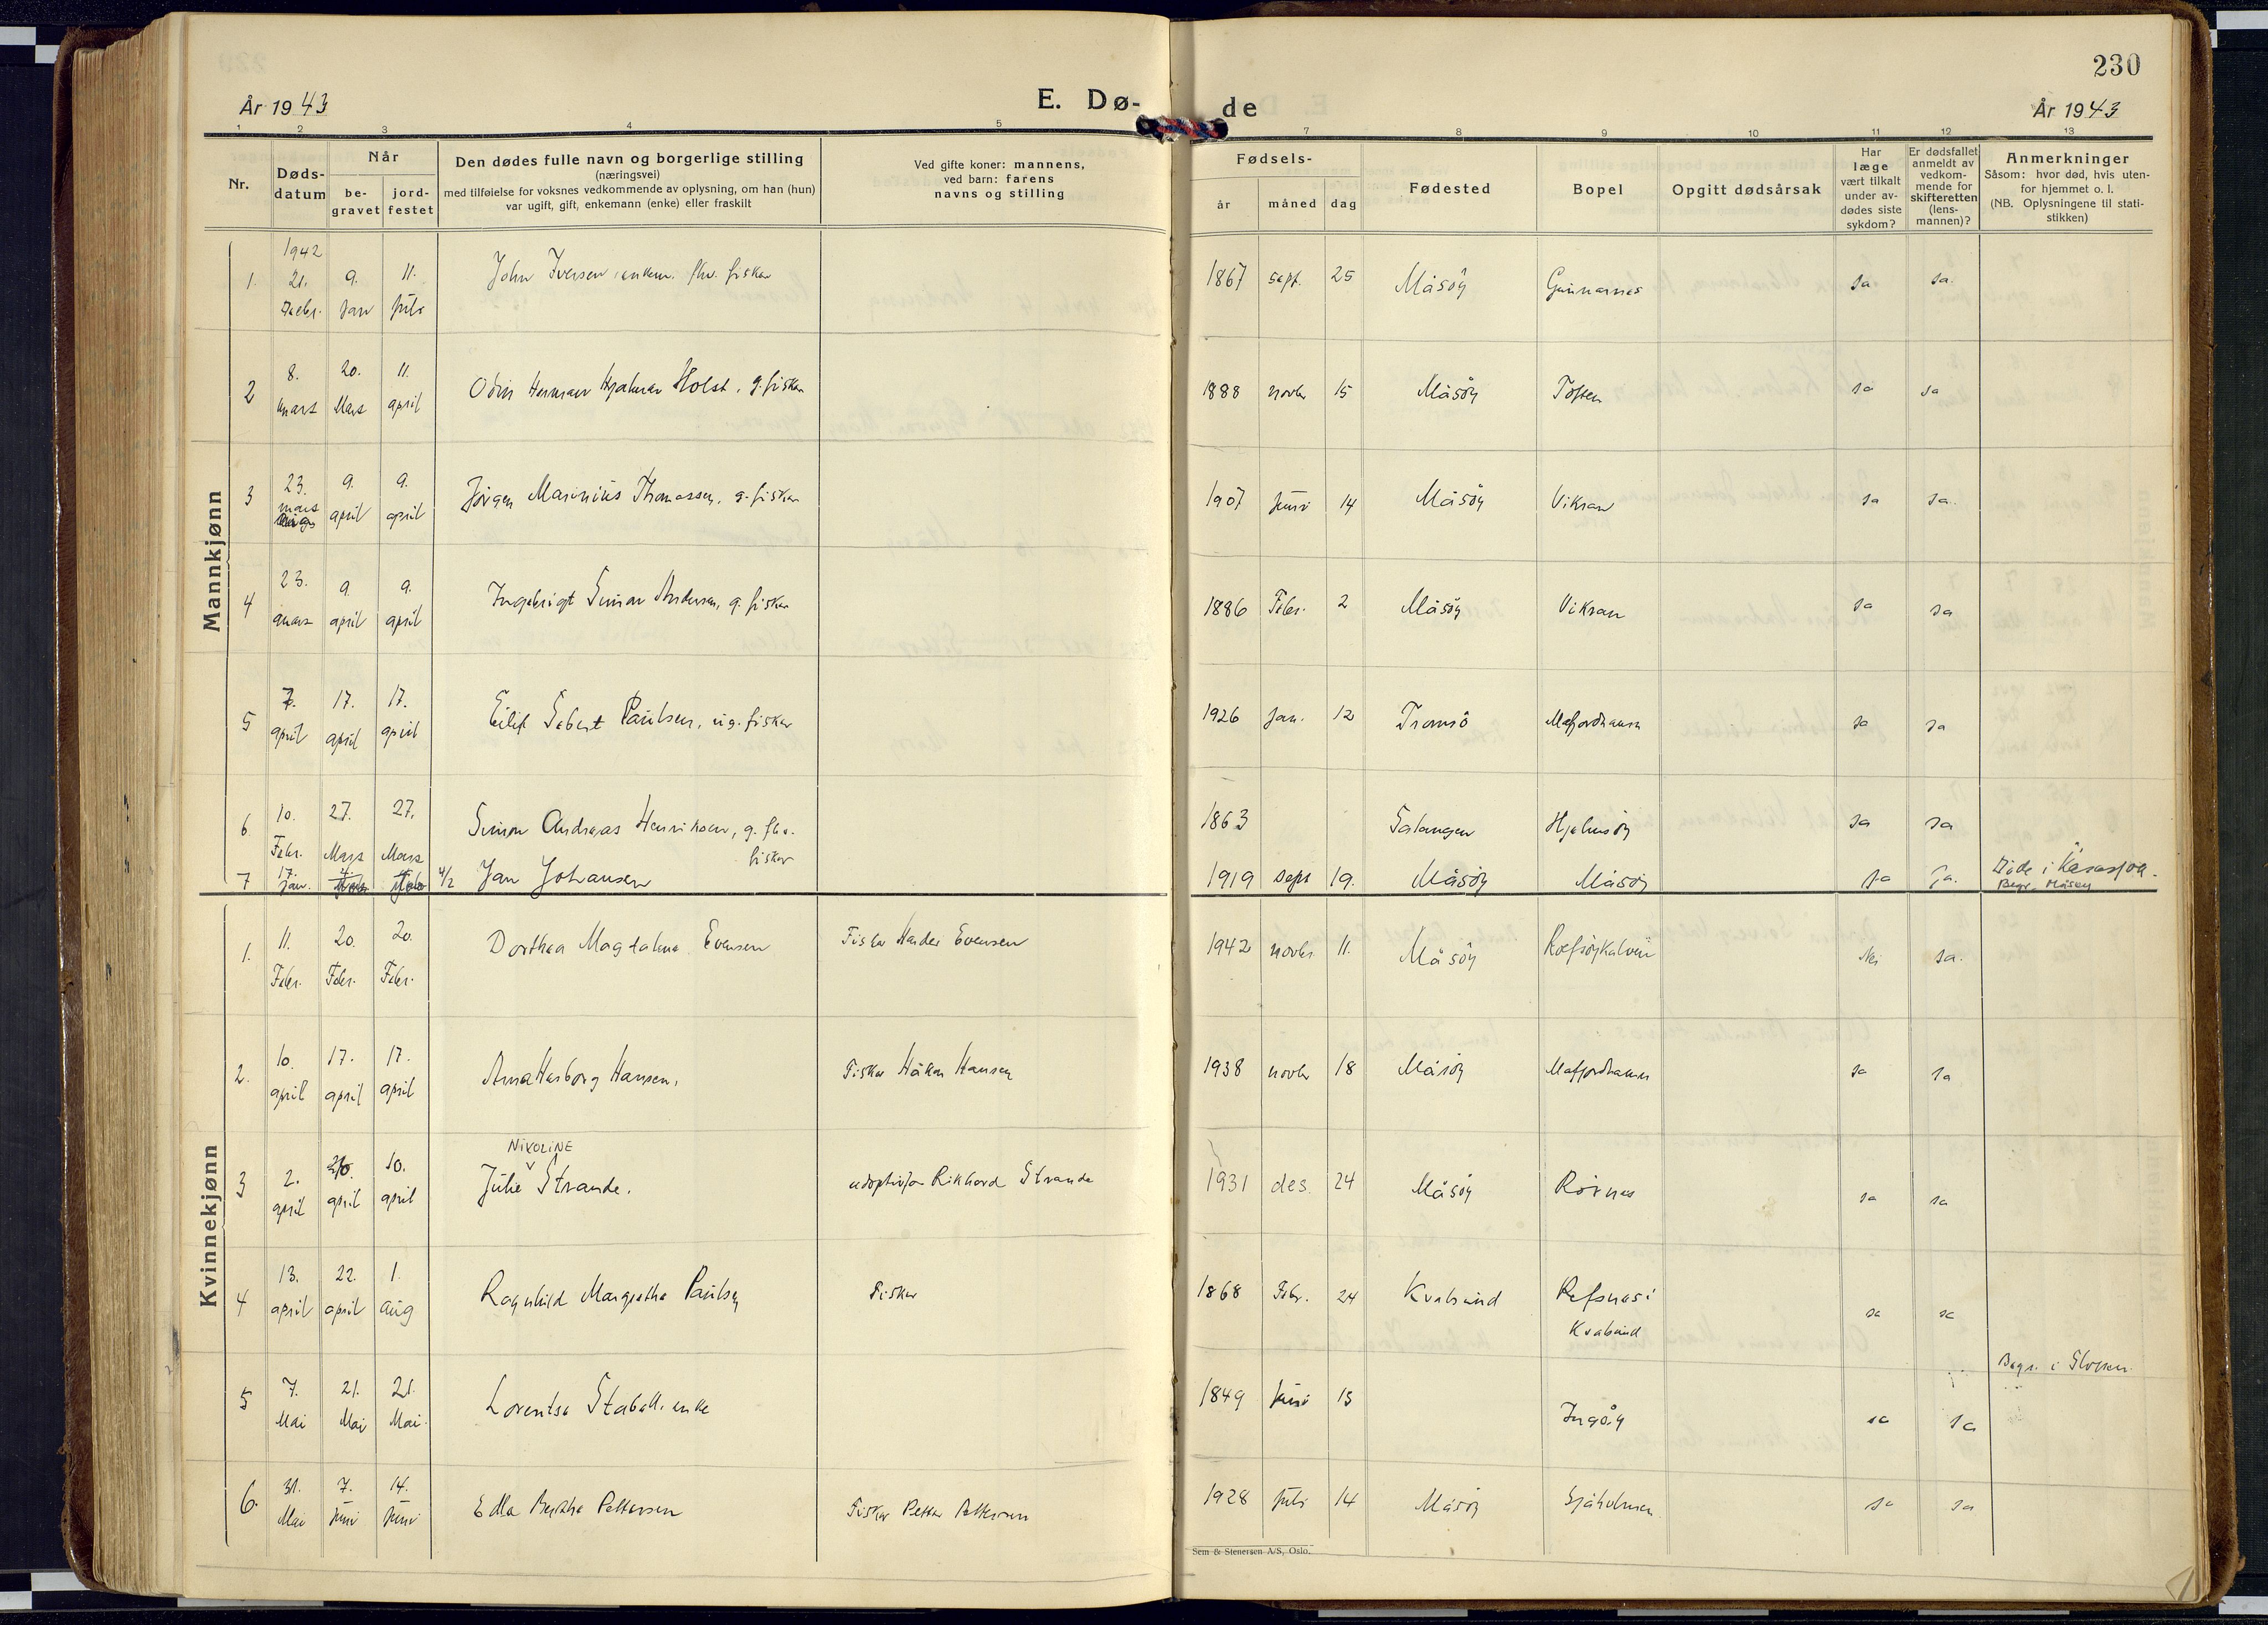 230
År 1943 E. Dø- de År 1943
1 2 3 4 5 7 8 9 10 11 12 13
Nr.
Døds-
datum
Når
be-
gravet
jord-
festet
Den dødes fulle navn og borgerlige stilling
(næringsvei)
med tilføielse for voksnes vedkommende av oplysning, om han (hun)
var ugift, gift, enkemann (enke) eller fraskilt
Ved gifte koner: mannens,
ved barn: farens
navns og stilling
Fødsels-
år måned dag
Fødested
Bopel
Opgitt dødsårsak
Har
læge
vært tilkalt
under av-
dødes siste
sykdom?
Er dødsfallet
anmeldt av
vedkom-
mende for
skifteretten
(lens-
mannen)?
Anmerkninger
Såsom: hvor død, hvis uten-
for hjemmet o. l.
(NB. Oplysningene til stati-
stikken)
Mannkjønn
1942
1. 21. 9. 11. John Iversen, enkem. fhv. fisker 1867 sept. 25 Måsöy Gunnarnes Ja Ja.
Decbr. Jan Juli
2 8. 20. 11. Odin Herman Hjalmar Holst, g. fisker 1888 novbr 15 Måsöy Toften Ja Ja
mars Mars april
3 23. 9. 9. Jörgen Marinius Thomassen, g. fisker 1907 Juni 14 Måsöy Vikran Ja Ja.
mars april april
4 23. 9. 9. Ingebrigt Simon Andersen, g. fisker 1886 Febr. 2 Måsöy Vikran Ja Ja
mars april april
5 7. 17. 17. Eilif Sebert Paulsen, ug. fisker 1926 Jan. 12 Tromsö Mafjordhamn Ja Ja
april april april
6 10. 27. 27. Simon Andreas Henriksen, g. fhv. 1863 Salangen Hjelmsöy Ja Ja
Febr. Mars Mars fisker
7 17. 4/2 Jan Johansen 1919 sept 19. Måsöy Måsöy Ja Ja. Döde i Karasjok.
Jan. Begr. Måsøy
Kvinnekjønn
1. 11. 20. 20. Dorthea Magdalena Evensen Fisker Hardei Evensen 1942 novbr. 11. Måsöy Refsöykalven Nei Ja.
Febr. Febr. Febr.
2. 10. 17. 17. Anna Hasborg Hansen, Fisker Håkon Hansen 1938 novbr 18 Måsöy Mafjordhamn Ja Ja
april april april
NIKOLINE
3 2. 10. Julie Strande. adoptivfar Rikhard Strande 1931 des. 24 Måsöy Rövnes Ja Ja
april april april
4 13. 22. 1. Ragnhild Margretha Paulsen Fisker 1868 Febr. 24 Kvalsund Refsnes i Ja Ja
april april aug Kvalsund
Begr. i Slotten.
5 7. 21. 21. Lorentse Stabell. enke 1849 Juni 15 Ingöy Ja Ja
Mai Mai Mai.
6. 31. 7. 14. Edla Berthe Pettersen Fisker Petter Pettersen 1928 Juli 14 Måsöy Sjåholmen Ja Ja
Mai Juni Juni
Sem & Stenersen A/S, Oslo.